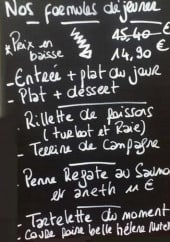 Nos formules déjeuner
* Prix en baisse
15,40 €
14,90 €
- Entrée + plat du jour
- Plat + dessert
- Rillette de poissons
(turbot et Raie)
- Terrine de Campagne
- Penne Regate au Saumon
et aneth 11 €
- Tartelette du moment
- Coupe poire belle hélène